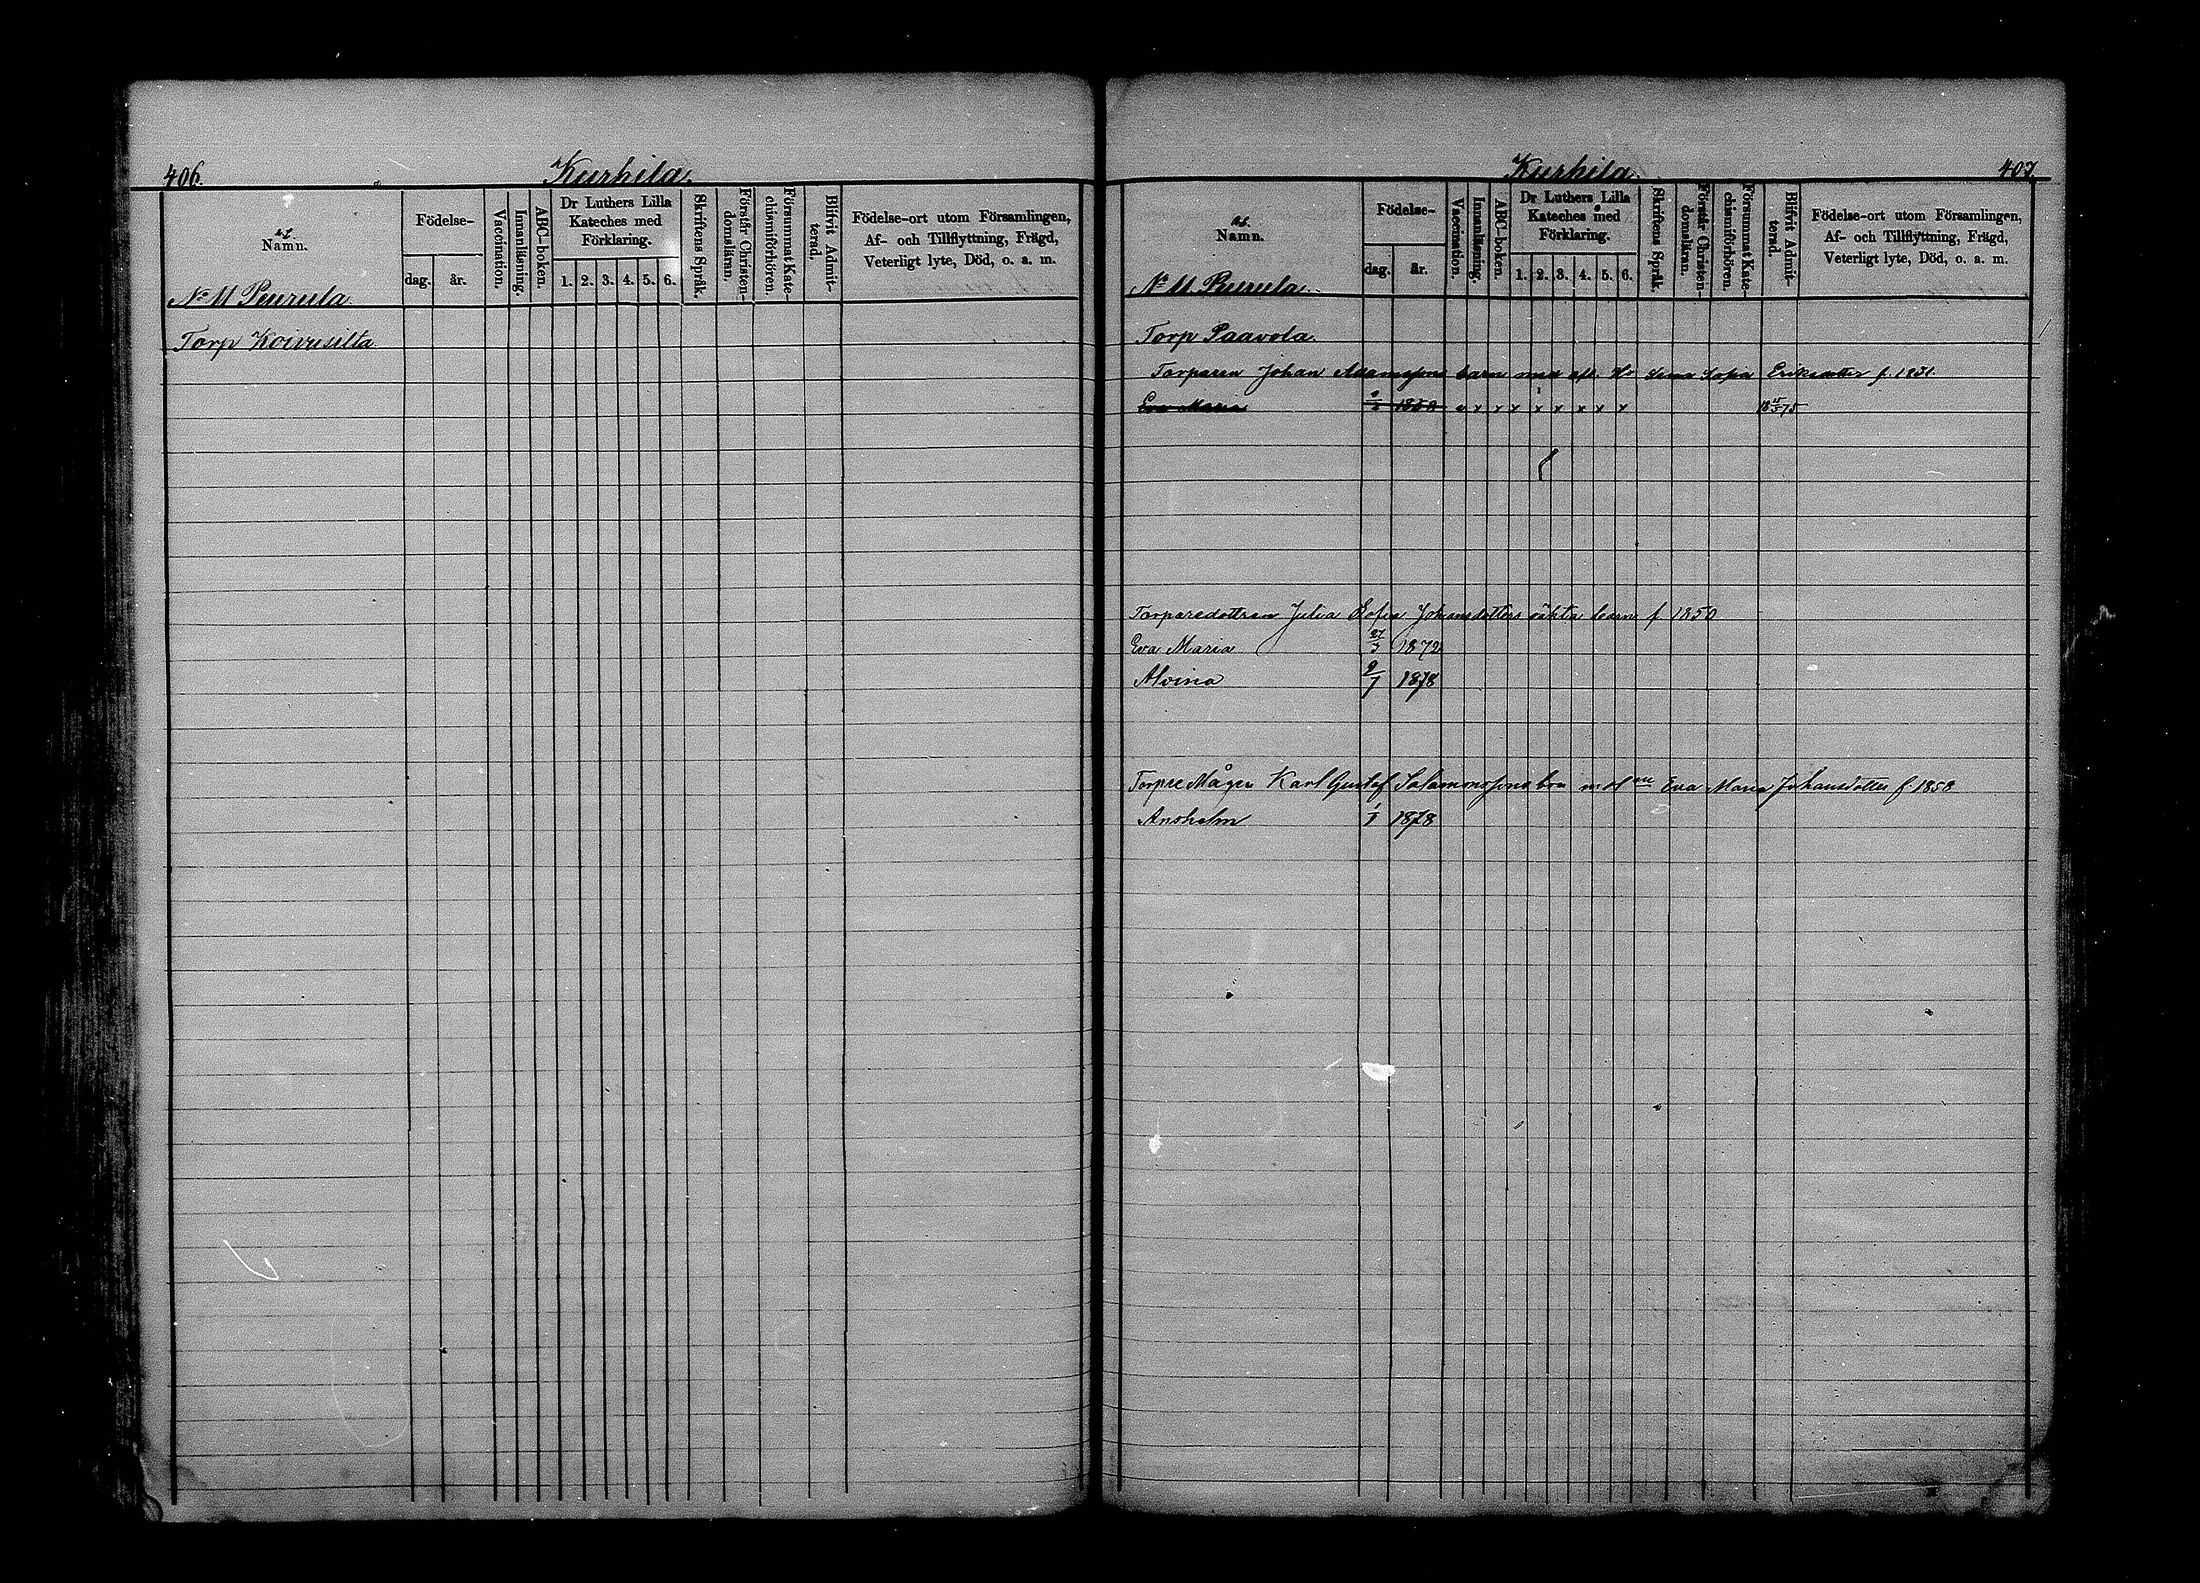 406.
Kurhila.
Namn.
Födelse-
dag.
år.
Vaccination.
Innanläsning.
ABC-boken.
Dr Luthers Lilla
Kateches med
Förklaring.
1. 2. 3. 4. 5. 6.
Skriftens Språk.
Förstår Christen-
domsläran.
Försummat Kate-
chismiförhören.
Blifvit Admit-
terad.
Födelse-ort utom Församlingen,
Af- och Tillflyttning, Frägd,
Veterligt lyte, Död, o. a. m.
No 11 Puurula
Torp Koivusilta
Kurhila.
407.
Namn.
Födelse-
dag.
år.
Vaccination.
Innanläsning.
ABC-boken.
Dr Luthers Lilla
Kateches med
Förklaring.
1. 2. 3. 4. 5. 6.
Skriftens Språk.
Förstår Christen-
domsläran.
Försummat Kate-
chismiförhören.
Blifvit Admit-
terad.
Födelse-ort utom Församlingen,
Af- och Tillflyttning, Frägd,
Veterligt lyte, Död, o. a. m.
No 11. Puurula.
Torp Paavola.
Torparen Johan Adamssons barn med afl. Sofia Eriksdotter f. 1831.
Eva Maria 1858 x x x x x x x x
Torparedottren Julia Sofia Johansdotters oäkta barn f. 1850
Eva Maria 27/3 1872
Alvina 9/7 1878
Torpre Mågen Karl Gustaf Salomonssons brn m Eva Maria Johansdotter f 1858
Ansholm 1/1 1878